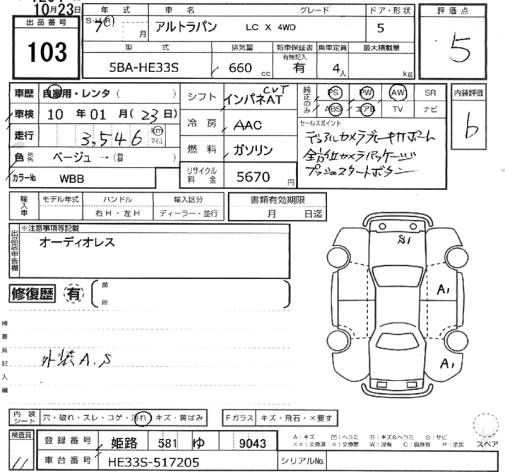 10月23日
出品番号
103
年式
車名
グレード
ドア・形状
評価点
月
アルトラパン
LC X 4WD
5
5
型式
排気量
新車保証書
有無記入
乗車定員
最大積載量
5BA-HE33S
660
cc
有
4
人
kg
車歴
自家用・レンタ( )
車検
10 年 01 月 (23日)
走行
3,546
km
マイル
色
ベージュ → (替 )
カラーNo
WBB
シフト
CVT
インパネAT
冷房
AAC
燃料
ガソリン
リサイクル料金
5670
円
純正のみ
PS PW AW SR
ABS エアB TV ナビ
内装評価
b
セールスポイント
デュアルカメラブレーキサポート
全方位カメラパッケージ
プッシュスタートボタン
輸入車
モデル年式
ハンドル
右H・左H
輸入区分
ディーラー・並行
書類有効期限
月 日迄
出品店申告欄
※注意事項等記載
オーディオレス
修復歴
有
箇所
検査員記入欄
外装A.S
S1
A1
A1
内装
シート
穴・破れ・スレ・コゲ・汚れ・キズ・黄ばみ
Fガラス
キズ・飛石・×要す
スペア
検査員
登録番号
姫路 581 ゆ 9043
車台番号
HE33S-517205
シリアルNo.